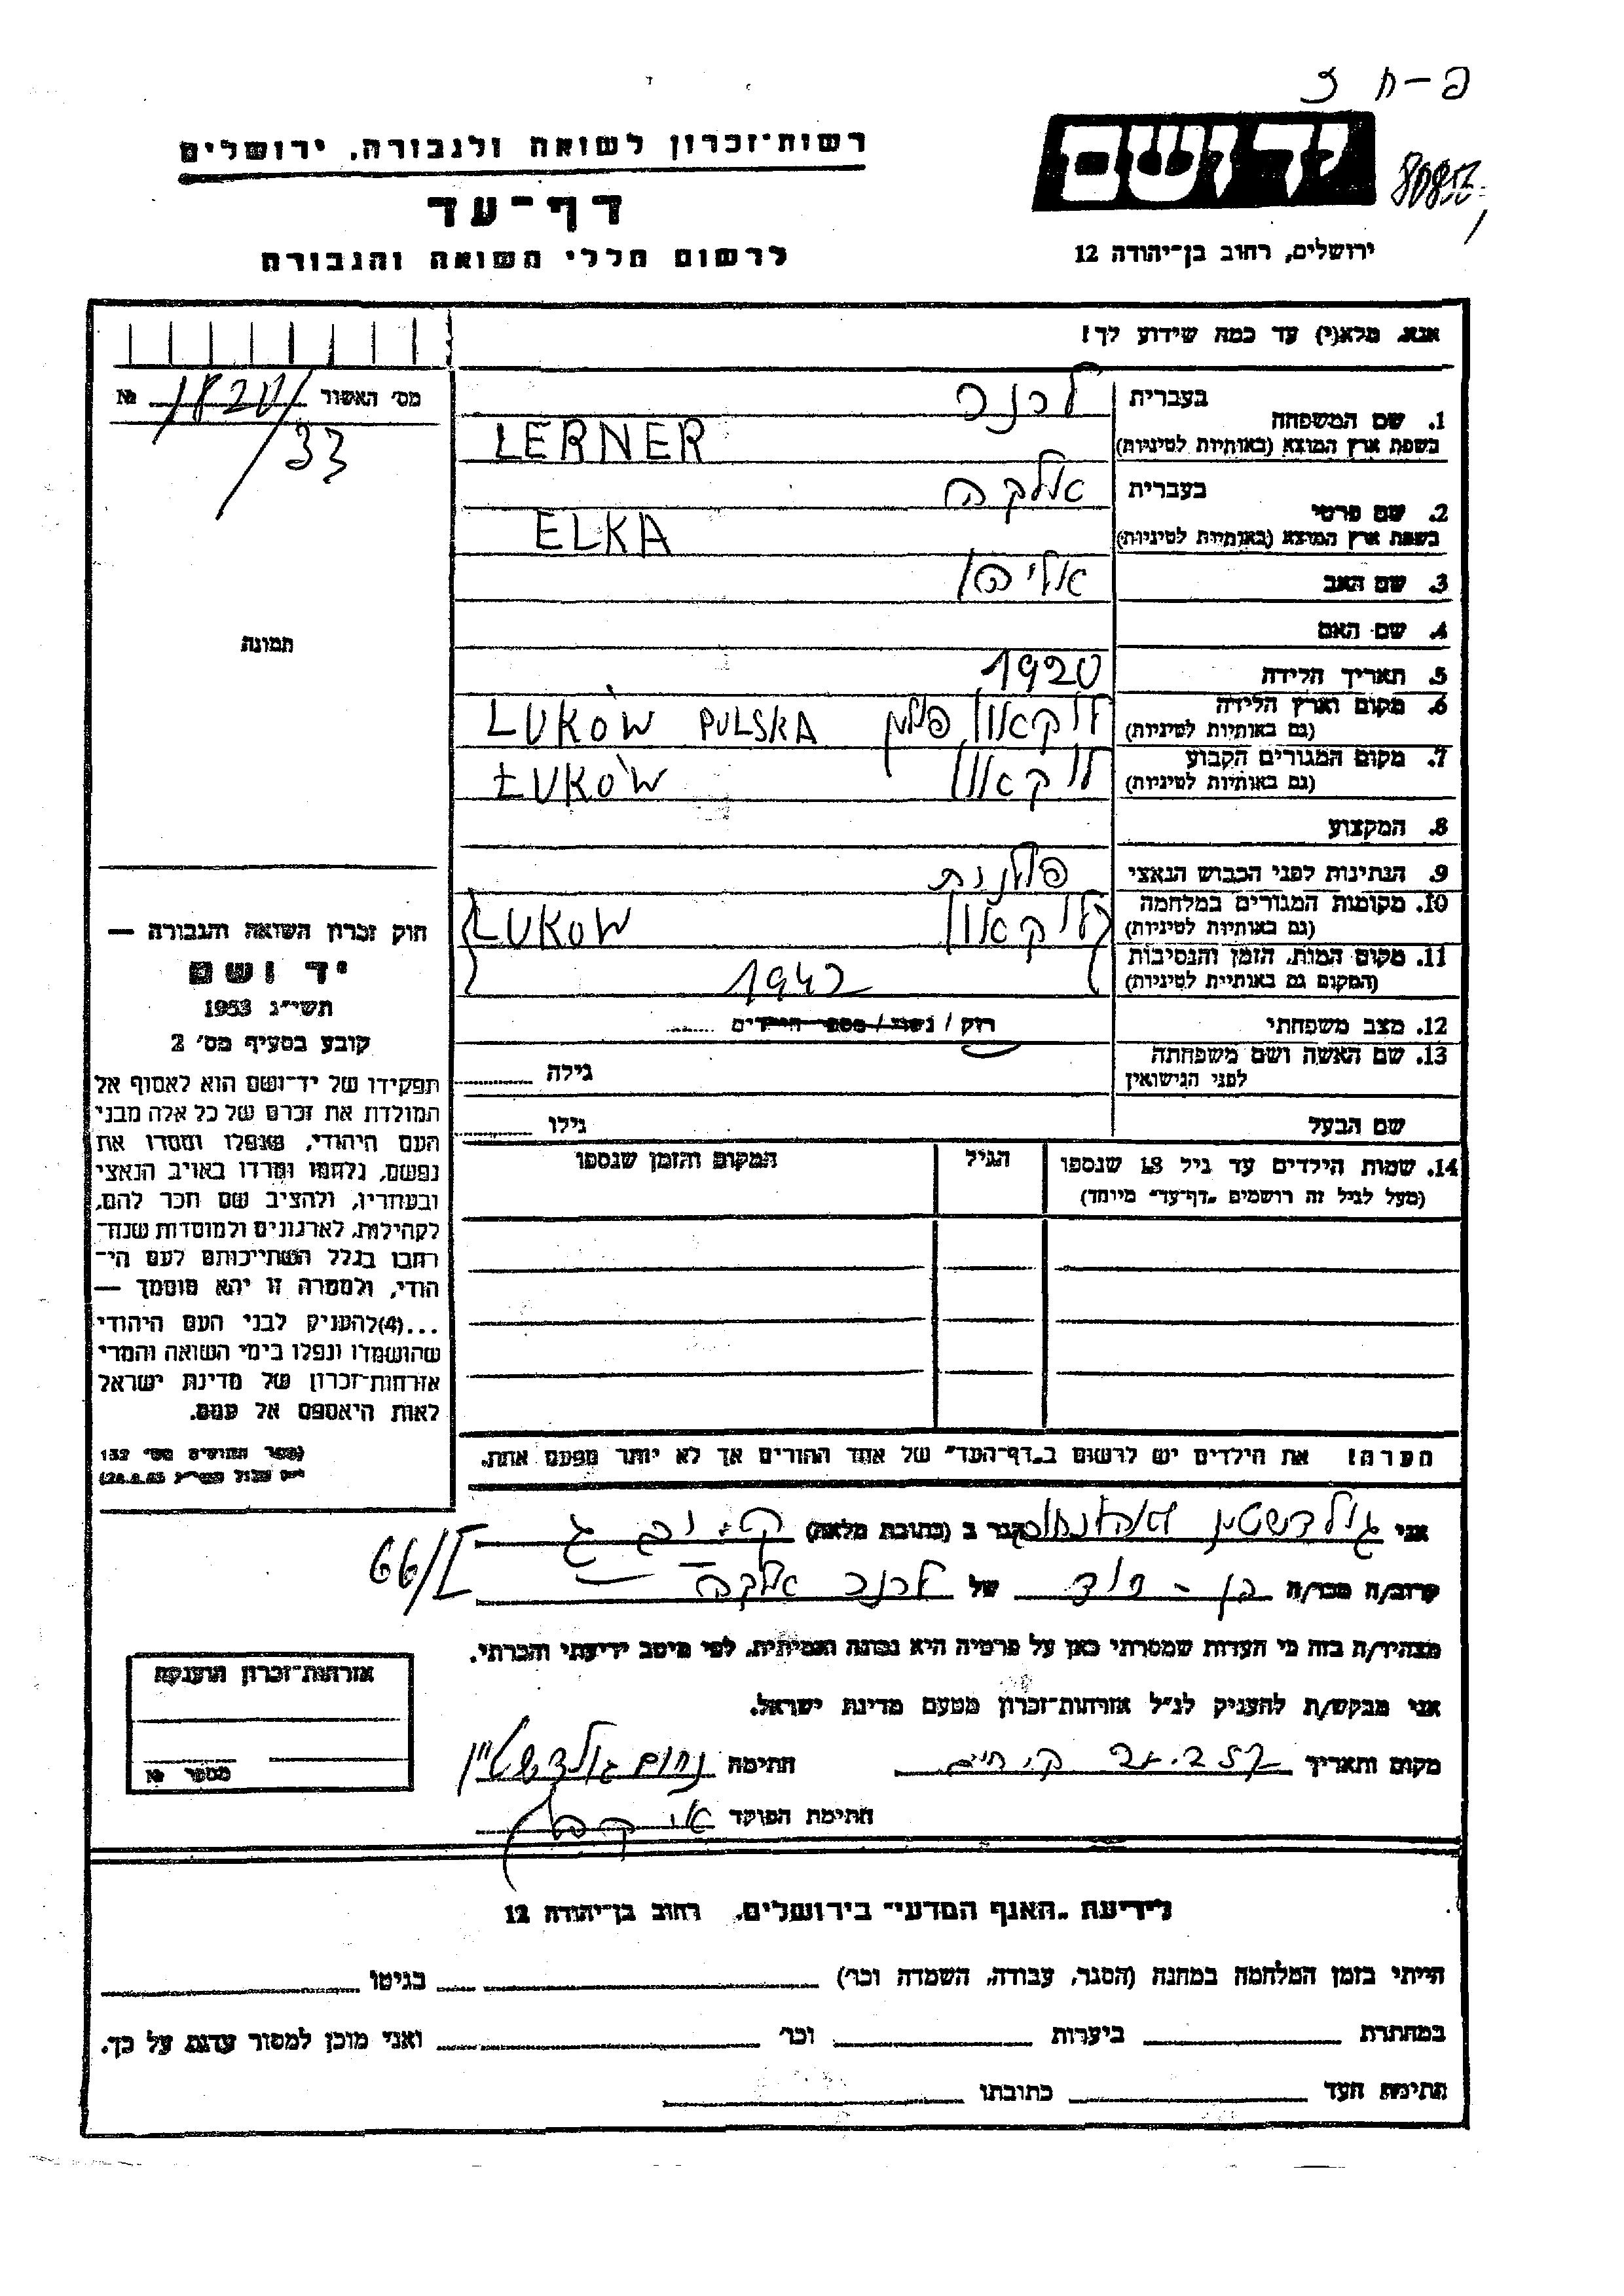 פ-ח 3
יד ושם
רשות־זכרון לשואה ולגבורה, ירושלים
דף־עד
לרשום חללי השואה והגבורה
ירושלים, רחוב בן־יהודה 12
אנא, מלא(י) עד כמה שידוע לך!
מס׳ האשור № 1820/33
תמונה
1. שם המשפחה בעברית לרנר
בשפת ארץ המוצא (באותיות לטיניות) LERNER
2. שם פרטי בעברית אלקה
בשפת ארץ המוצא (באותיות לטיניות) ELKA
3. שם האב אליהו
4. שם האם
5. תאריך הלידה 1920
6. מקום וארץ הלידה (גם באותיות לטיניות) לוקאוו פולין LUKÓW PULSKA
7. מקום המגורים הקבוע (גם באותיות לטיניות) לוקאוו ŁUKÓW
8. המקצוע
9. הנתינות לפני הכבוש הנאצי פולנית
10. מקומות המגורים במלחמה (גם באותיות לטיניות) לוקאוו LUKOW
11. מקום המות, הזמן והנסיבות (המקום גם באותיות לטיניות) 1942
12. מצב משפחתי רוק / נשוי / מספר הילדים ......
13. שם האשה ושם משפחתה לפני הנישואין גילה
שם הבעל גילו
14. שמות הילדים עד גיל 18 שנספו הגיל המקום והזמן שנספו
(מעל לגיל זה רושמים „דף־עד״ מיוחד)
הערה! את הילדים יש לרשום ב„דף־העד״ של אחד ההורים אך לא יותר מפעם אחת.
חוק זכרון השואה והגבורה —
יד ושם
תשי״ג 1953
קובע בסעיף מס׳ 2
תפקידו של יד־ושם הוא לאסוף אל
המולדת את זכרם של כל אלה מבני
העם היהודי, שנפלו ומסרו את
נפשם, נלחמו ומרדו באויב הנאצי
ובעוזריו, ולהציב שם וזכר להם,
לקהילות, לארגונים ולמוסדות שנח־
רבו בגלל השתייכותם לעם הי־
הודי, ולמטרה זו יהא מוסמך —
...(4)להעניק לבני העם היהודי
שהושמדו ונפלו בימי השואה והמרי
אזרחות־זכרון של מדינת ישראל
לאות היאספם אל עמם.
(ספר החוקים מס׳ 132
אני גולדשטין נחום הגר ב (כתובת מלאה)
66/I
קרוב/ה מכר/ה בן-דוד של לרנר אלקה
מצהיר/ה בזה כי העדות שמסרתי כאן על פרטיה היא נכונה ואמיתית, לפי מיטב ידיעתי והכרתי.
אני מבקש/ת להעניק לנ״ל אזרחות־זכרון מטעם מדינת ישראל.
מקום ותאריך חתימה נחום גולדשטיין
חתימת הפוקד
אזרחות־זכרון הוענקה
מספר №
לידיעת „האגף המדעי״ בירושלים, רחוב בן־יהודה 12
הייתי בזמן המלחמה במחנה (הסגר, עבודה, השמדה וכו׳) בגיטו
במחתרת ביערות וכו׳ ואני מוכן למסור עדות על כך.
חתימת העד כתובתו